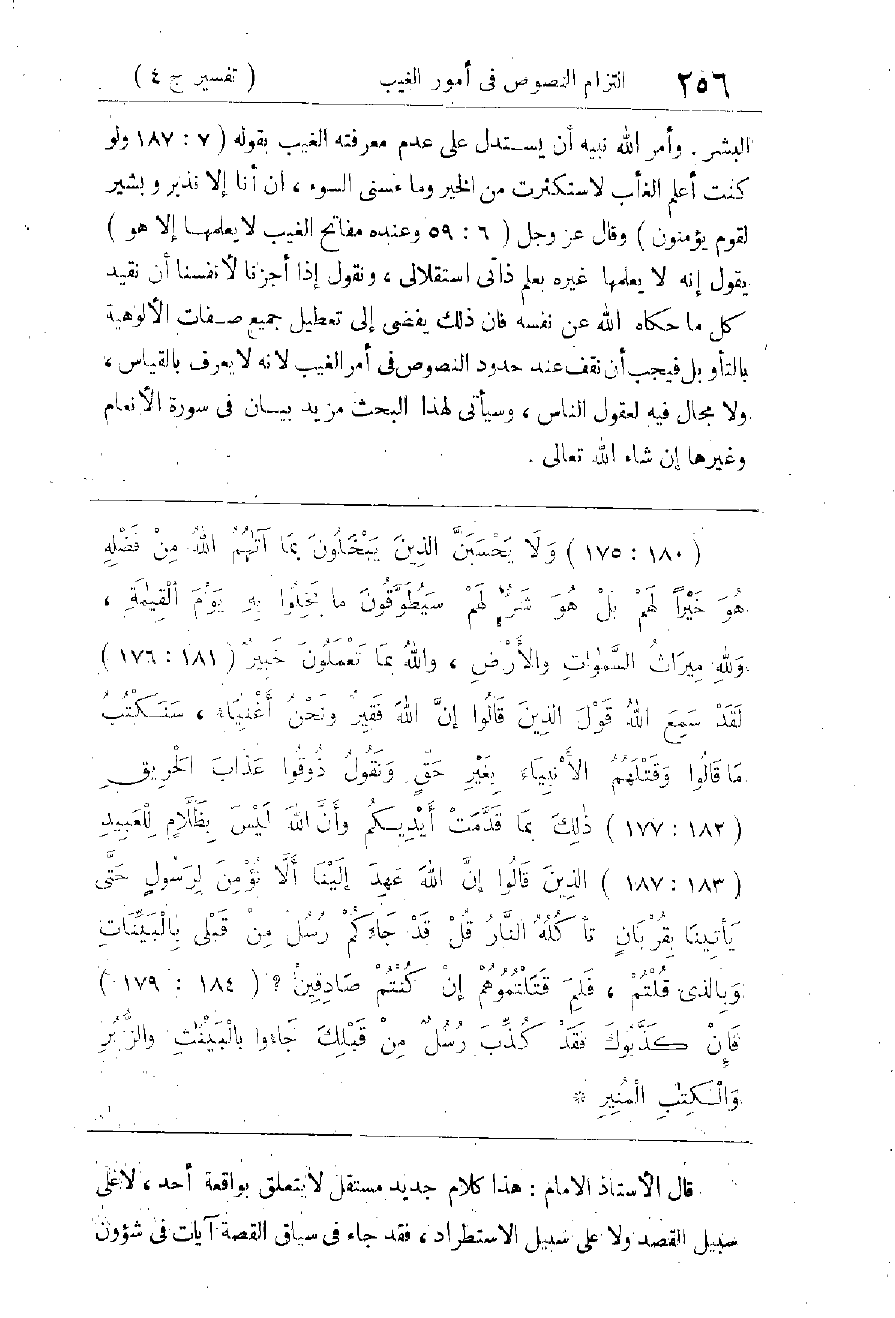 ٢٥٦ التزام النصوص فى أمور الغيب ( تفسير ج ٤ )
البشر . وأمر الله نبيه أن يستدل على عدم معرفته الغيب بقوله ( ٧ : ١٨٧ ولو
كنت أعلم الغأب لاستكثرت من الخير وما مسنى السوء ، ان أنا إلا نذير وبشير
لقوم يؤمنون ) وقال عز وجل ( ٦ : ٥٩ وعنده مفاتح الغيب لا يعلمها إلا هو )
يقول إنه لا يعلمها غيره بعلم ذاتى استقلالى ، ونقول إذا أجزنا لأنفسنا أن نقيد
كل ما حكاه الله عن نفسه فان ذلك يفضى إلى تعطيل جميع صفات الألوهية
بالتأويل فيجب أن نقف عند حدود النصوص فى أمر الغيب لانه لا يعرف بالقياس ،
ولا مجال فيه لعقول الناس ، وسيأتى لهذا البحث مزيد بيان فى سورة الأنعام
وغيرها إن شاء الله تعالى .
( ١٨٠ : ١٧٥ ) وَلَا يَحْسَبَنَّ الذِينَ يَبْخَلُونَ بِمَا آتٰهُمُ اللهُ مِنْ فَضْلِهِ
هُوَ خَيْراً لَهُمْ بَلْ هُوَ شَرٌّ لَهُمْ سَيُطَوَّقُونَ ما بَخِلُوا بِهِ يَوْمَ الْقِيٰمَةِ ،
وَللهِ مِيرَاثُ السَّمٰوَاتِ والأَرْضِ ، واللهُ بِمَا تَعْمَلُونَ خَبِيرٌ ( ١٨١ : ١٧٦ )
لَقَدْ سَمِعَ اللهُ قَوْلَ الذِينَ قَالُوا إنَّ اللهَ فَقِيرٌ ونَحْنُ أَغْنِيَاءُ ، سَنَكْتُبُ
مَا قَالُوا وَقَتْلَهُمُ الأَنْبِيَاءَ بِغَيْرِ حَقٍّ وَنَقُولُ ذُوقُوا عَذَابَ الْحَرِيقِ
( ١٨٢ : ١٧٧ ) ذٰلِكَ بِمَا قَدَّمَتْ أَيْدِيكُمْ وأَنَّ اللهَ لَيْسَ بِظَلَّامٍ لِلْعَبِيدِ
( ١٨٣ : ١٨٧ ) الذِينَ قَالُوا إنَّ اللهَ عَهِدَ إلَيْنَا أَلَّا نُؤْمِنَ لِرَسُولٍ حَتَّى
يَأتِينَا بِقُرْبَانٍ تَأكُلُهُ النَّارُ قُلْ قَدْ جَاءَكُمْ رُسُلٌ مِنْ قَبْلِى بِالْبَيِّنَاتِ
وَبِالذى قُلْتُمْ ، فَلِمَ قَتَلْتُمُوهُمْ إنْ كُنْتُمْ صَادِقِينَ ؟ ( ١٨٤ : ١٧٩ )
فَإِنْ كَذَّبُوكَ فَقَدْ كُذِّبَ رُسُلٌ مِنْ قَبْلِكَ جَاءوا بالْبَيِّنٰتِ والزُّبُرِ
وَالْكِتٰبِ الْمُنِيرِ *
قال الأستاذ الامام : هذا كلام جديد مستقل لا يتعلق بواقعة أحد ، لا على
سبيل القصد ولا على سبيل الاستطراد ، فقد جاء فى سياق القصة آيات فى شؤون